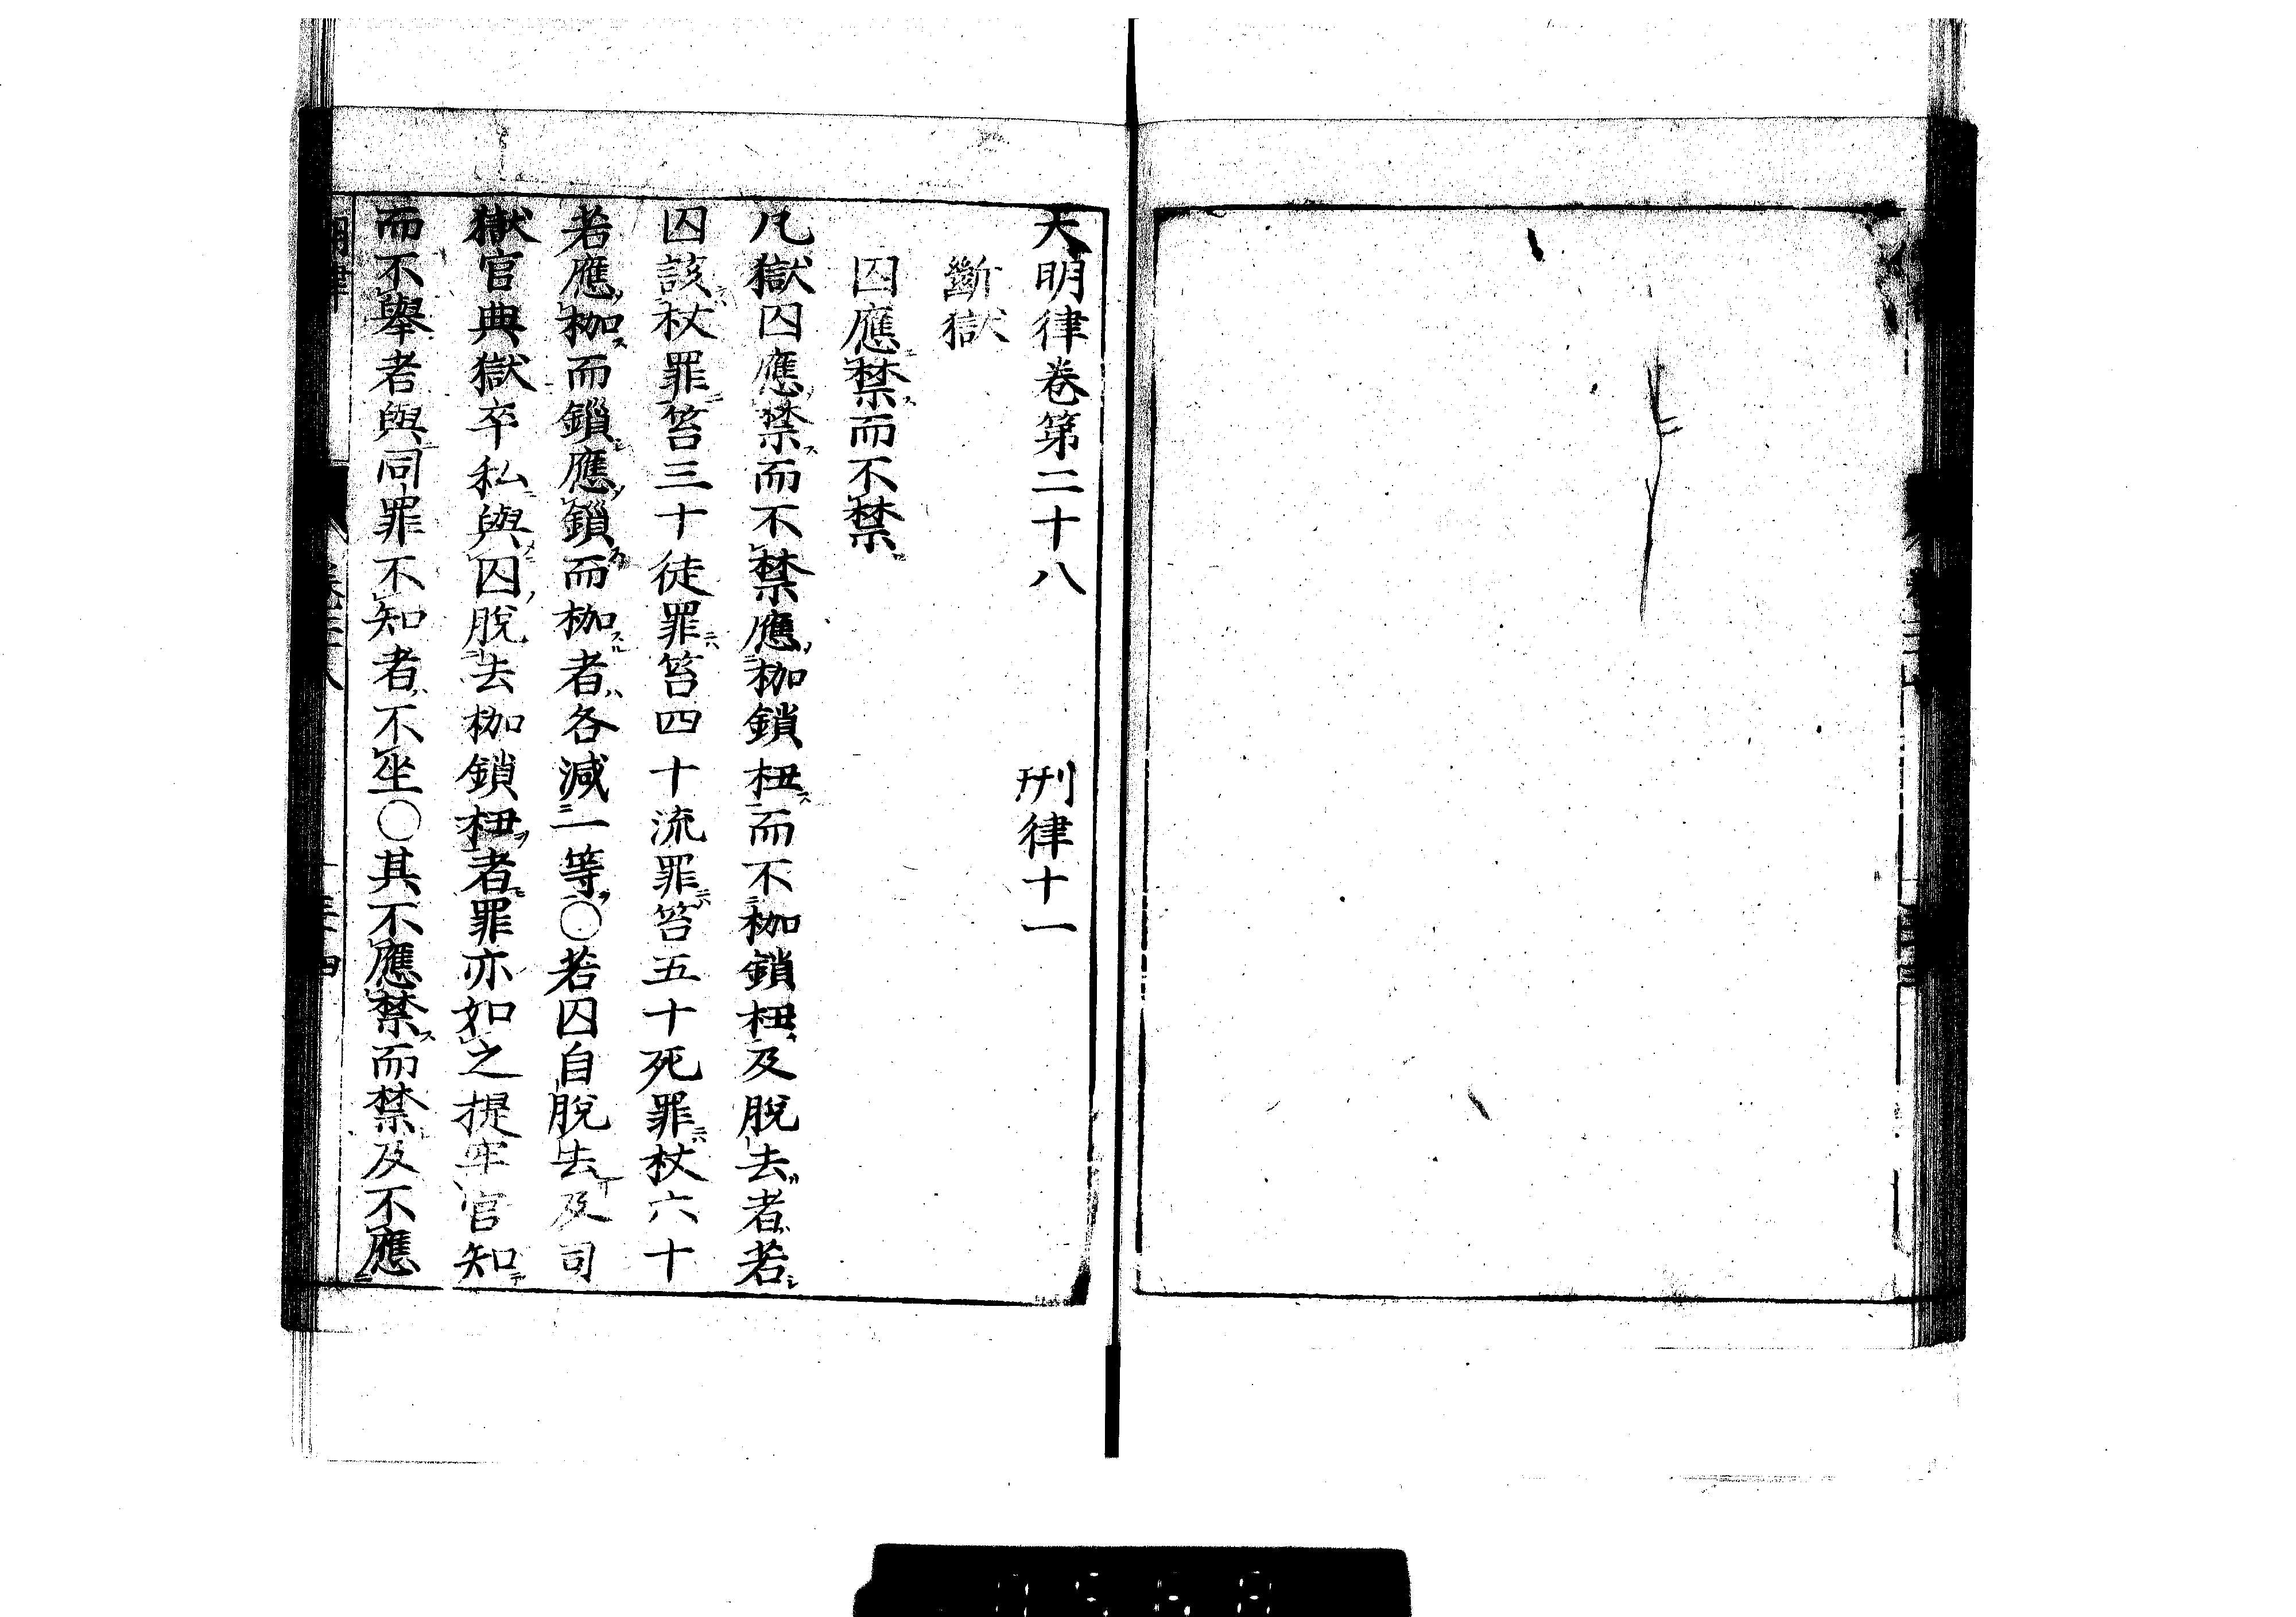 大明律卷第二十八 刑律十一
斷獄
囚應禁而不禁
凡獄囚應禁而不禁應枷鎖杻而不枷鎖杻及脫去者若
囚該杖罪笞三十徒罪笞四十流罪笞五十死罪杖六十
若應枷而鎖應鎖而枷者各減一等○若囚自脫去及司
獄官典獄卒私與囚脫去枷鎖杻者罪亦如之提牢官知
而不舉者與同罪不知者不坐○其不應禁而禁及不應